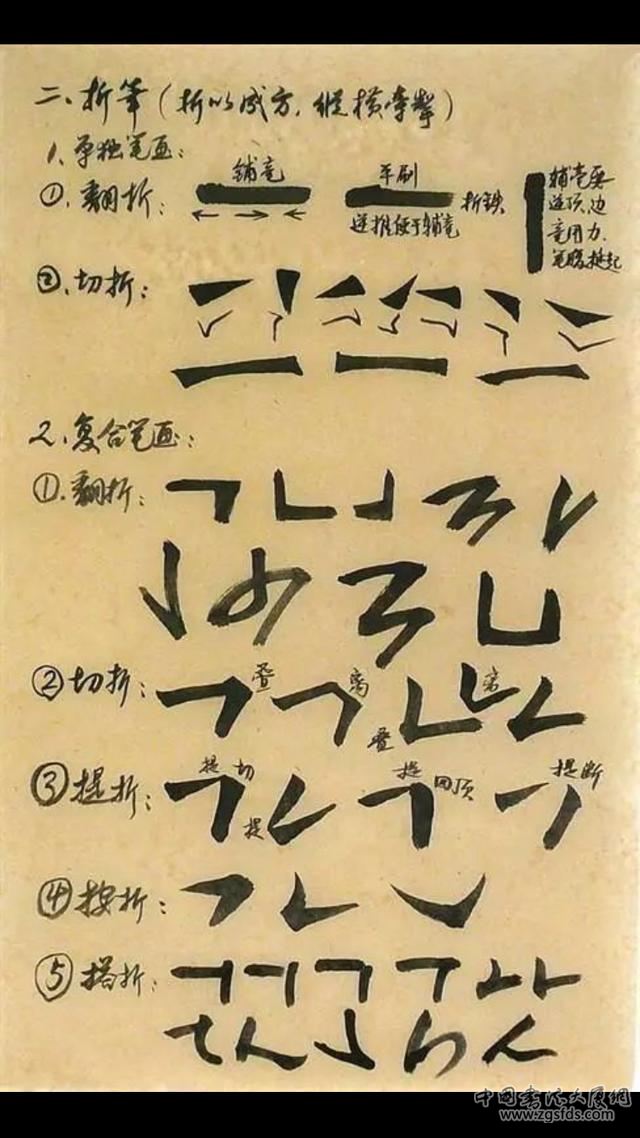 二、折笔（折以成方，纵横牵掣）
1、单独笔画：
①、翻折：
铺毫
平刷
逆推便于铺毫
折铁
铺毫要
逆顶，边
毫用力，
笔腹挺起
②、切折：
2、复合笔画：
①、翻折：
②切折：
叠
离
叠
离
③提折：
提
切
提
提
回顶
提断
④按折：
⑤搭折：
中国书法大厦网
www.zgsfds.com